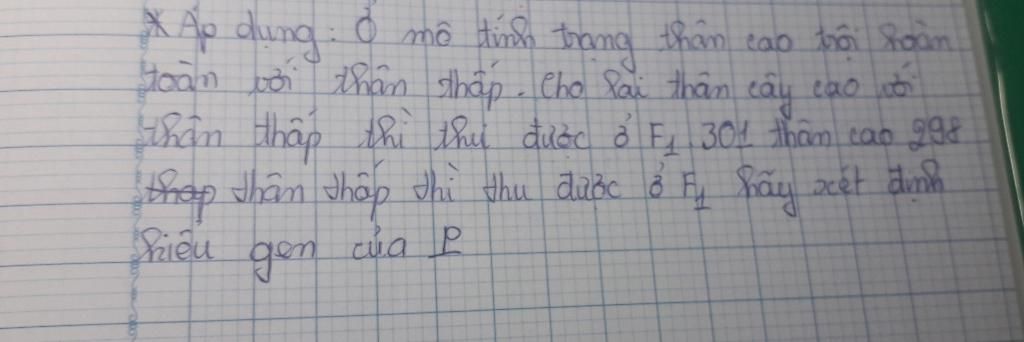 * Áp dụng: Ở mô tính trạng thân cao trội hoàn
toàn với thân thấp. Cho lai thân cây cao với
thân thấp thì thu được ở F1 301 thân cao 298
thap thân thấp thì thu được ở F1 hãy xét định
kiểu gen của P